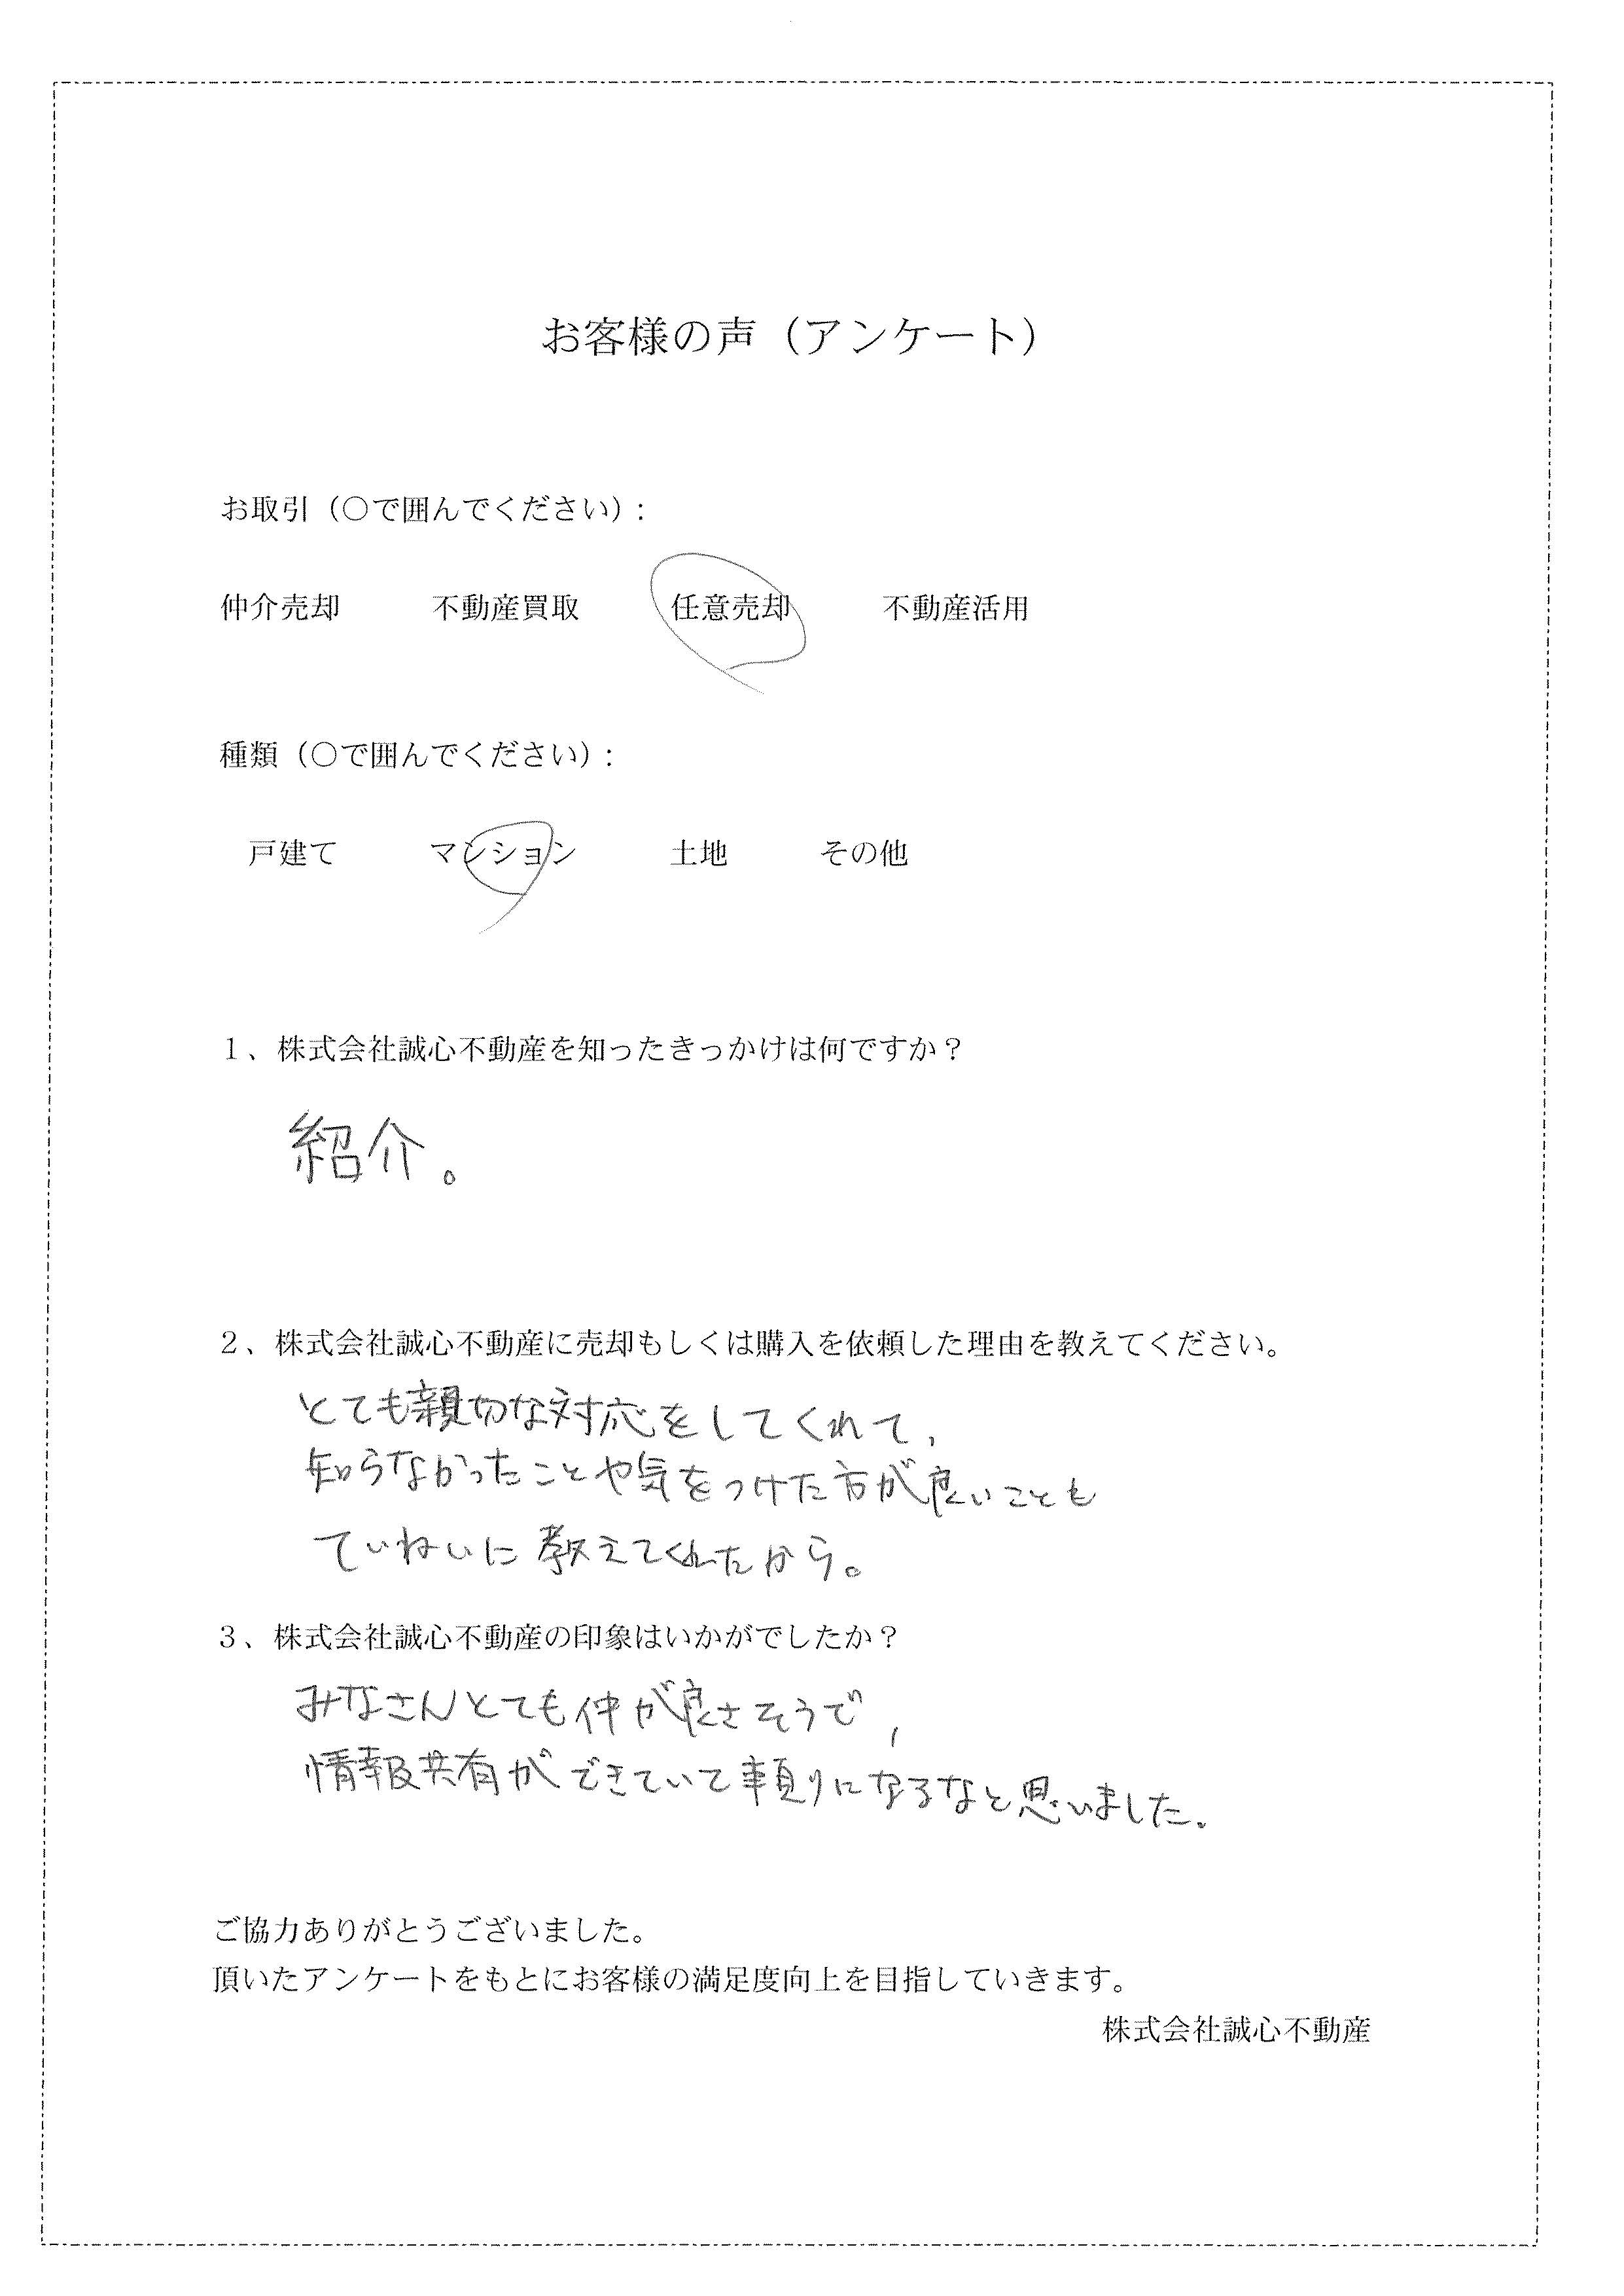 お客様の声（アンケート）
お取引（○で囲んでください）:
仲介売却 不動産買取 任意売却 不動産活用
種類（○で囲んでください）:
戸建て マンション 土地 その他
１、株式会社誠心不動産を知ったきっかけは何ですか？
紹介。
２、株式会社誠心不動産に売却もしくは購入を依頼した理由を教えてください。
とても親切な対応をしてくれて、
知らなかったことや気をつけた方が良いことも
ていねいに教えてくれたから。
３、株式会社誠心不動産の印象はいかがでしたか？
みなさんとても仲が良さそうで、
情報共有ができていて頼りになるなと思いました。
ご協力ありがとうございました。
頂いたアンケートをもとにお客様の満足度向上を目指していきます。
株式会社誠心不動産